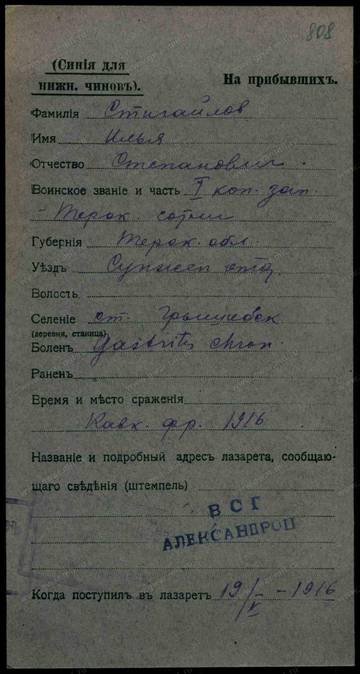 808
(Синія для
нижн. чиновъ).
На прибывшихъ.
Фамилія Стигайлов
Имя Илья
Отчество Степанович
Воинское званіе и часть I коп. зап.
Терск. сотни
Губернія Терск. обл.
Уѣздъ
Волость
Селеніе ст.
(деревня, станица)
Боленъ Gastritis chron.
Раненъ
Время и мѣсто сраженія
Кавк. фр. 1916
Названіе и подробный адресъ лазарета, сообщаю-
щаго свѣдѣнія (штемпель)
ВСГ
АЛЕКСАНДРОП
Когда поступилъ въ лазаретъ 19/V - 1916